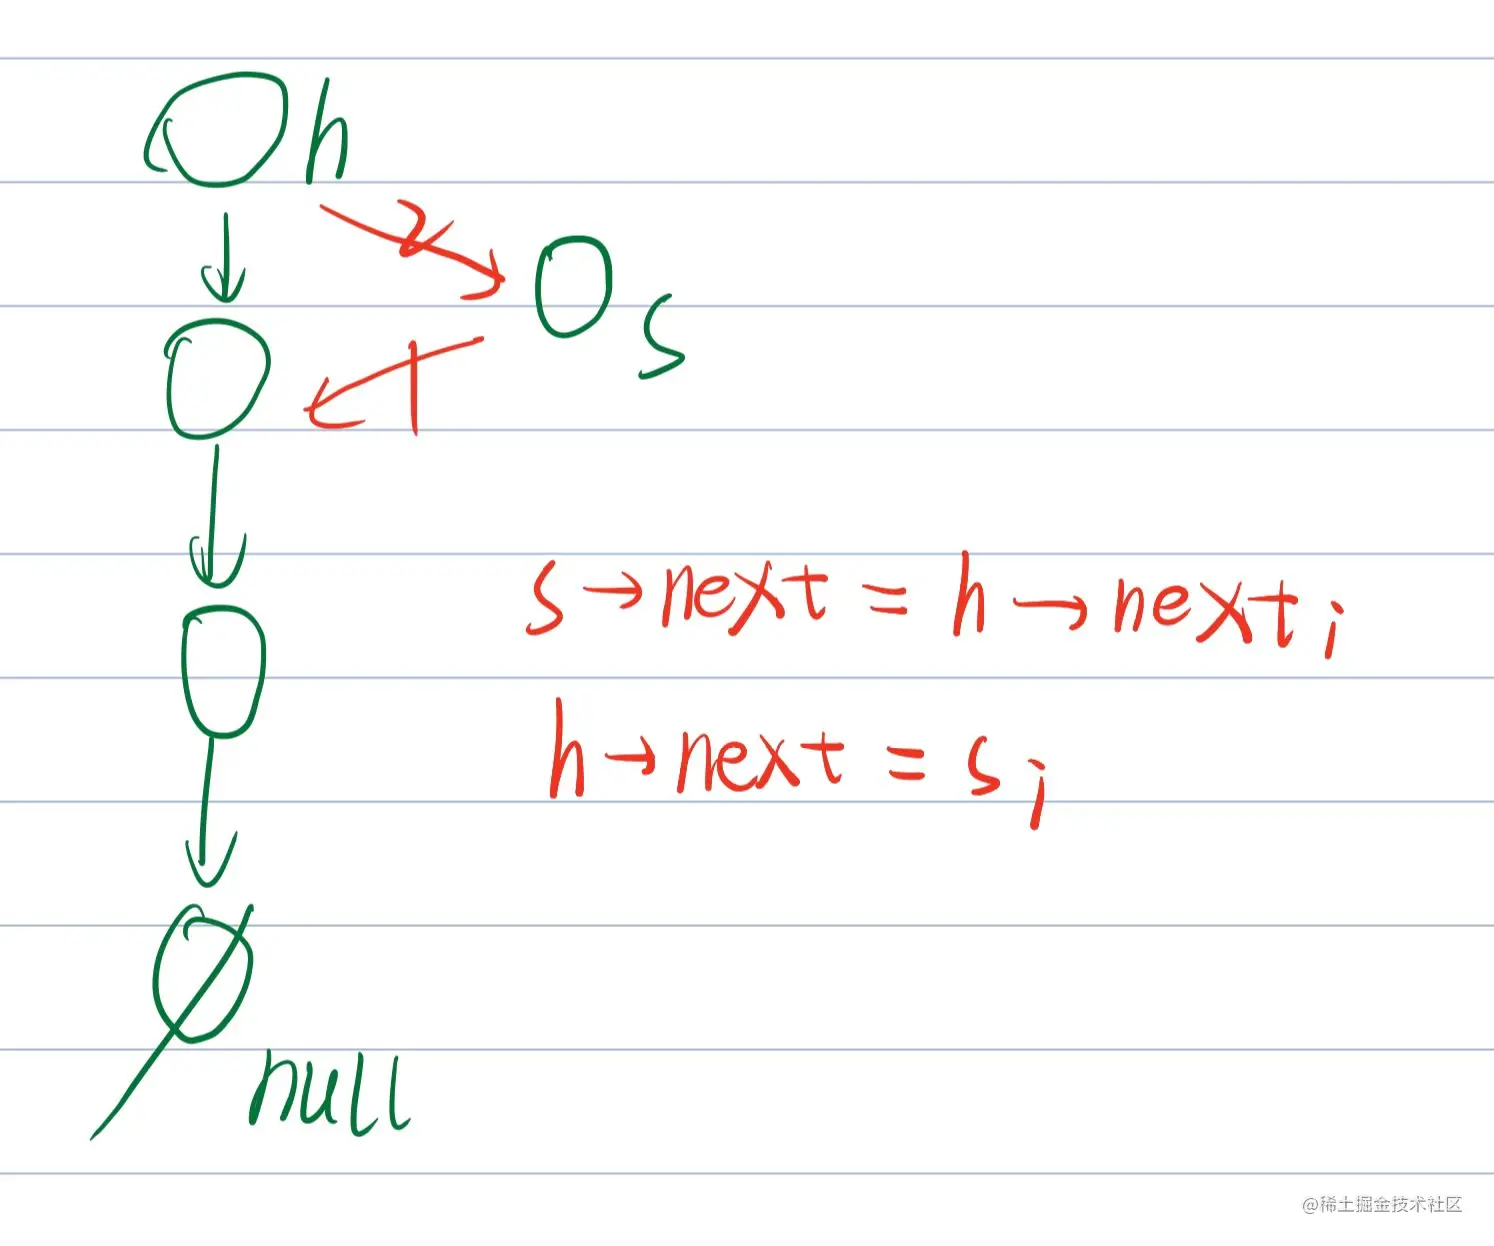 h
2
s
1
s→next = h→next;
h→next = s;
null
@稀土掘金技术社区